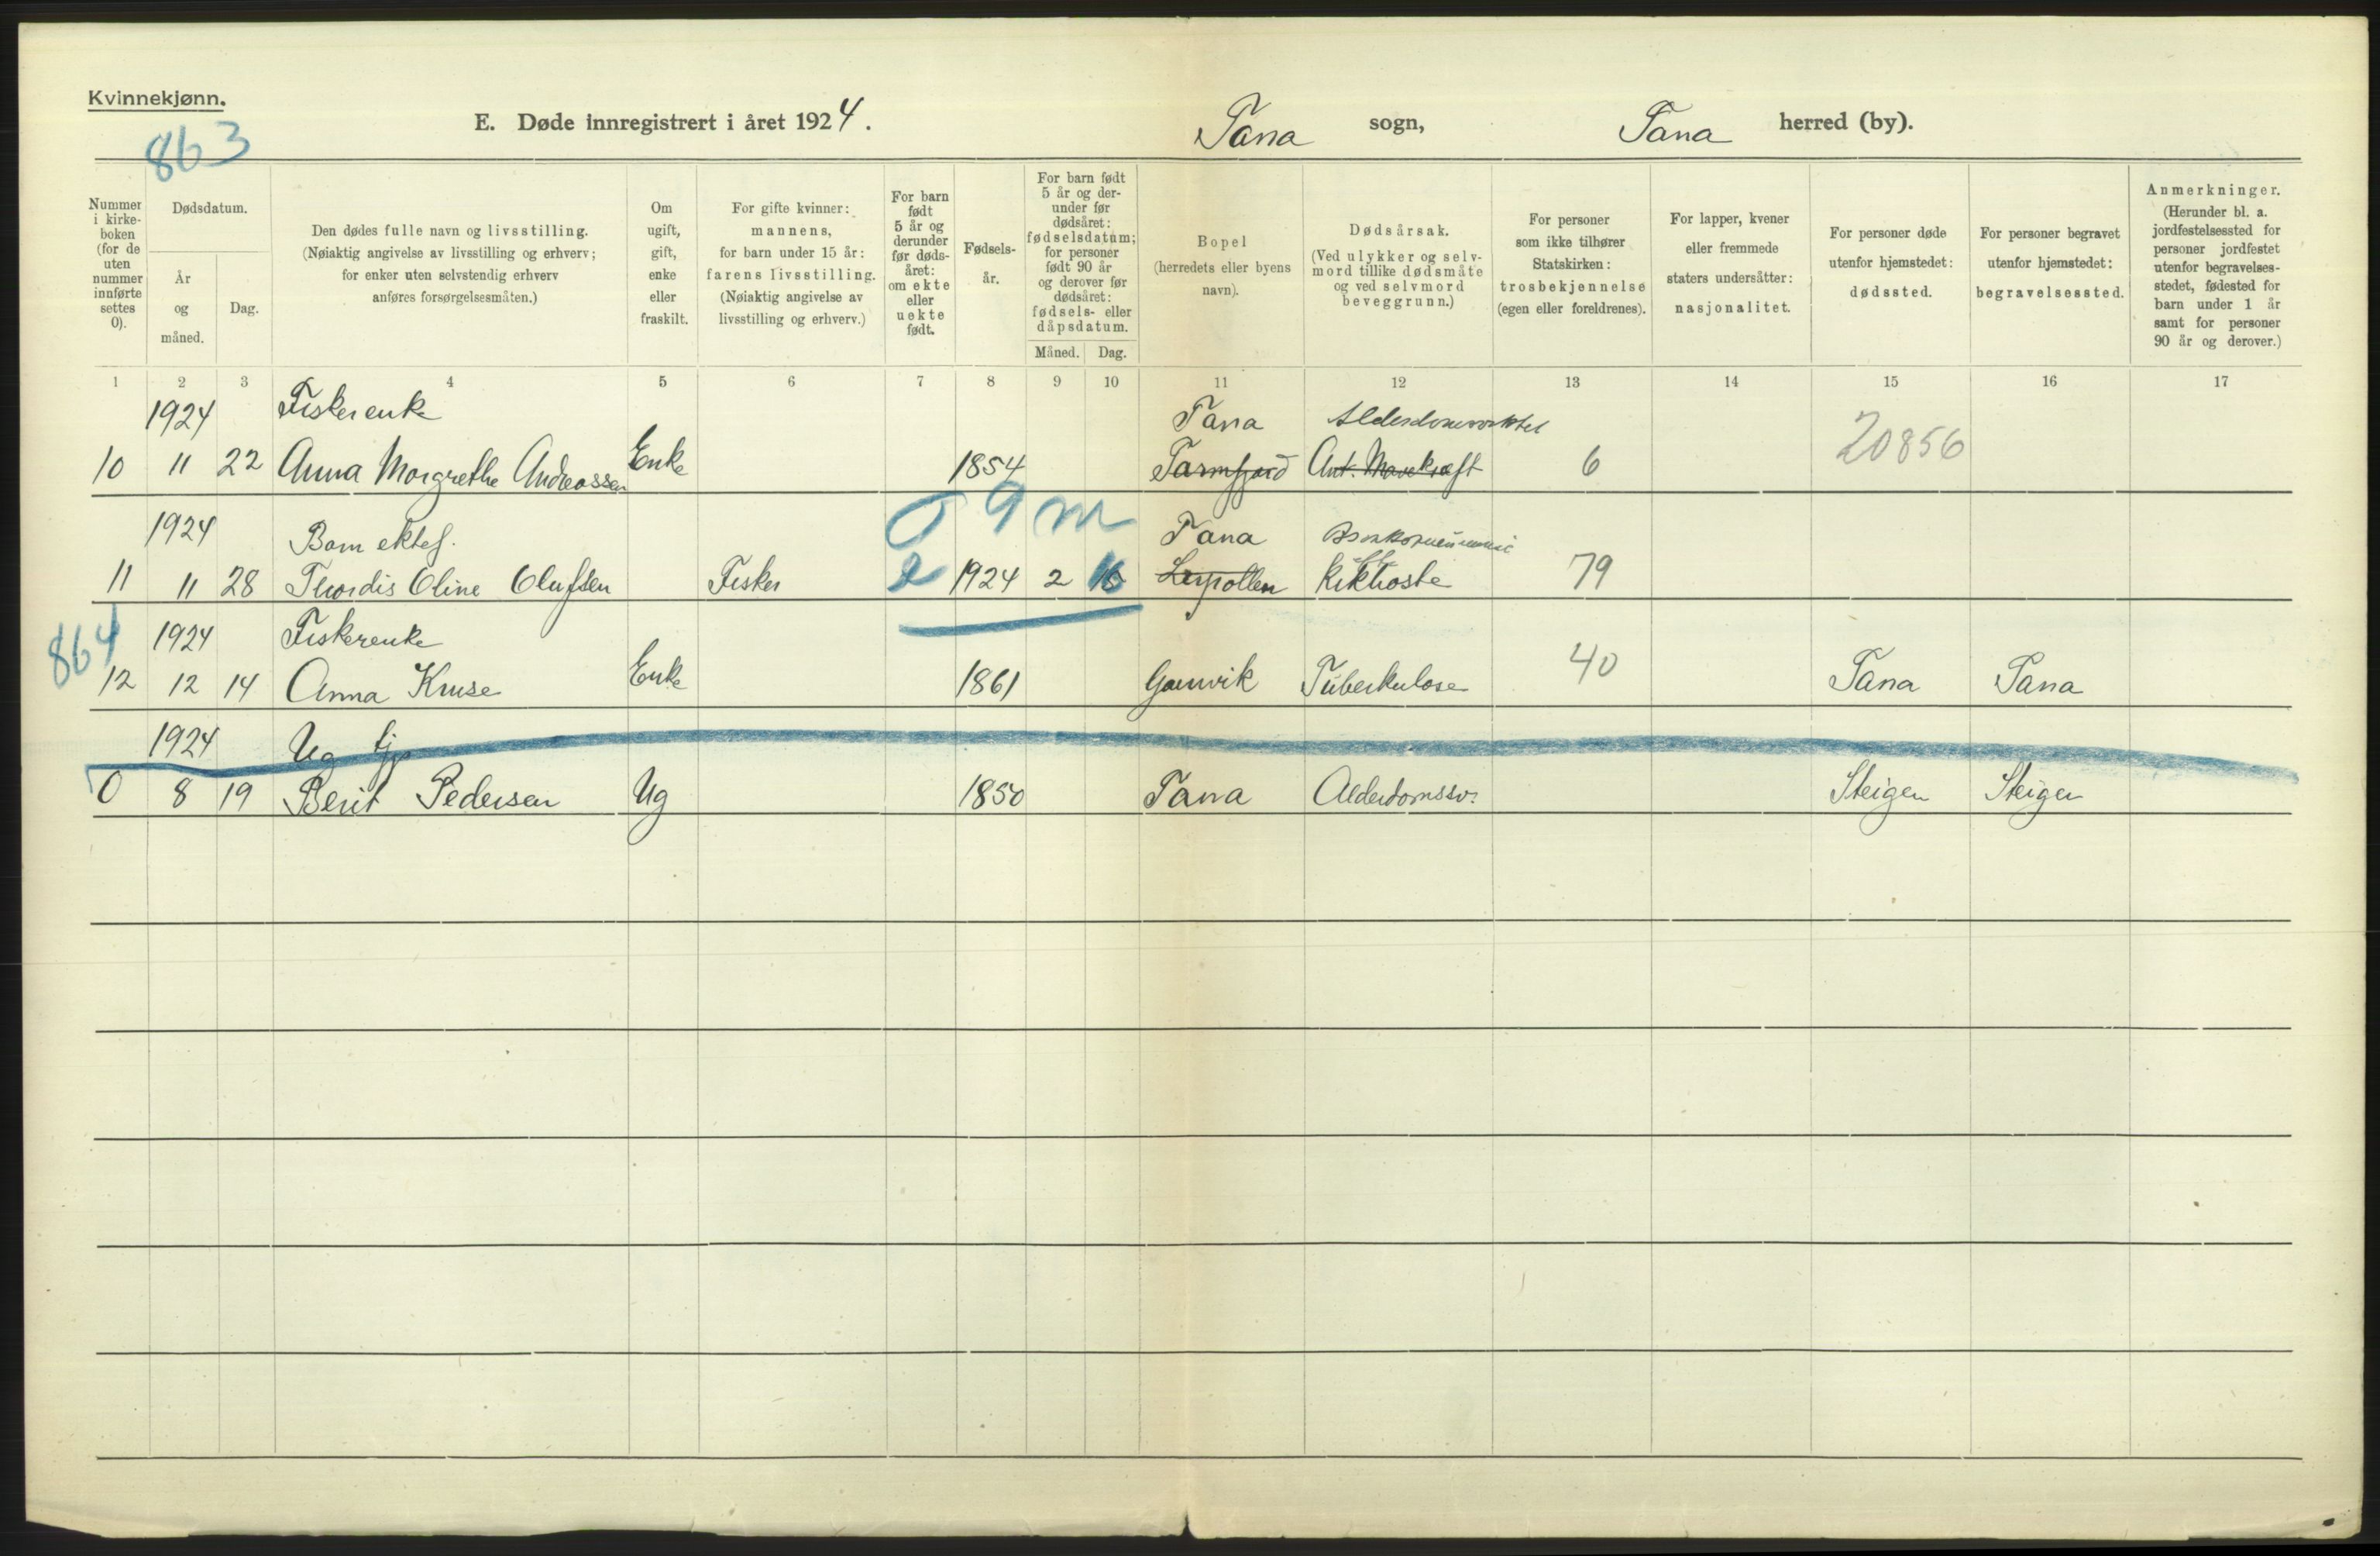 Kvinnekjønn.
863
E. Døde innregistrert i året 1924.
Tana sogn, Tana herred (by).
Nummer i kirkeboken (for de uten nummer innførte settes 0).
Dødsdatum.
År og måned.
Dag.
Den dødes fulle navn og livsstilling.
(Nøiaktig angivelse av livsstilling og erhverv; for enker uten selvstendig erhverv anføres forsørgelsesmåten.)
Om ugift, gift, enke eller fraskilt.
For gifte kvinner: mannens, for barn under 15 år: farens livsstilling. (Nøiaktig angivelse av livsstilling og erhverv.)
For barn født 5 år og derunder før dødsåret: om ekte eller uekte født.
Fødselsår.
For barn født 5 år og derunder før dødsåret: fødselsdatum; for personer født 90 år og derover før dødsåret: fødsels- eller dåpsdatum.
Måned. Dag.
Bopel (herredets eller byens navn).
Dødsårsak. (Ved ulykker og selvmord tillike dødsmåte og ved selvmord beveggrunn.)
For personer som ikke tilhører Statskirken: trosbekjennelse (egen eller foreldrenes).
For lapper, kvener eller fremmede staters undersåtter: nasjonalitet.
For personer døde utenfor hjemstedet: dødssted.
For personer begravet utenfor hjemstedet: begravelsessted.
Anmerkninger. (Herunder bl. a. jordfestelsessted for personer jordfestet utenfor begravelsesstedet, fødested for barn under 1 år samt for personer 90 år og derover.)
1 2 3 4 5 6 7 8 9 10 11 12 13 14 15 16 17
1924 Fiskerenke Tana 20856
10 11 22 Anna Margrethe Andreassen Enke 1854 Tarmfjord Ant. Mavekræft 6
9 m
1924 Barn ektef. Tana
11 11 28 Thordis Oline Olufsen Fisker e 1924 2 16 Leirpollen Kikhoste 79
864 1924 Fiskerenke
12 12 14 Anna Kruse Enke 1861 Gamvik Tuberkulose 40 Tana Tana
1924 Ug tj
0 8 19 Berit Pedersen Ug 1850 Tana Alderdomssv. Steigen Steigen